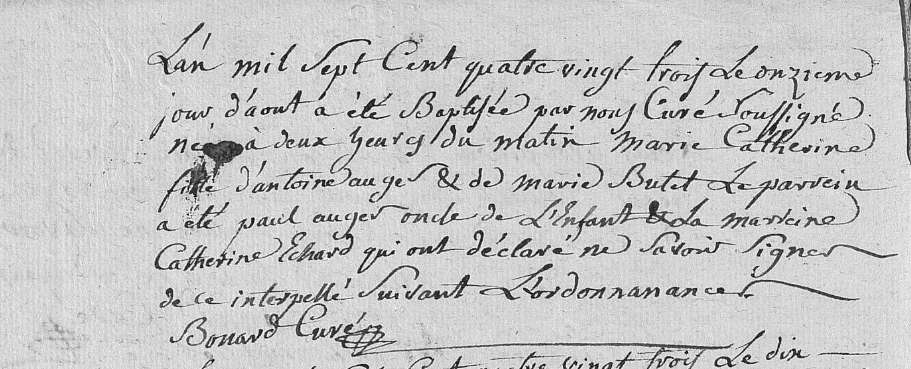 L'an mil sept Cent quatre vingt trois Le onzieme
jour d'aout a été Baptisée par nous Curé soussigné
né à deux heures du matin Marie Catherine
fille d'antoine auger & de marie Butet Le parrein
a été paul auger oncle de L'Enfant & La marreine
Catherine Echard qui ont déclaré ne savoir signer
de ce interpellé suivant L'ordonnanance
Bouard Curé
Cent quatre vingt trois Le dix